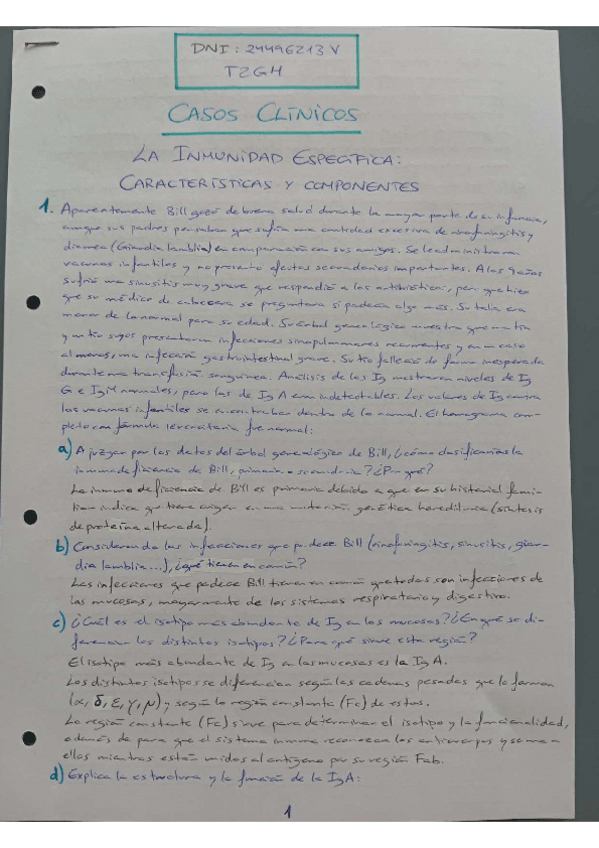 DNI: 24496213V
T2GH
CASOS CLÍNICOS
LA INMUNIDAD ESPECÍFICA:
CARACTERÍSTICAS Y COMPONENTES
1. Aparentemente Bill gozó de buena salud durante la mayor parte de su infancia,
aunque sus padres pensaban que sufría una cantidad excesiva de rinofaringitis y
diarrea (Giardia lamblia) en comparación con sus amigos. Se le administraron
vacunas infantiles y no presentó efectos secundarios importantes. A los 9 años
sufrió una sinusitis muy grave que respondió a los antibióticos, pero que hizo
que su médico de cabecera se preguntara si padecía algo más. Su talla era
menor de la normal para su edad. Su árbol genealógico muestra que una tía
y un tío suyos presentaron infecciones sinopulmonares recurrentes y en un caso
al menos, una infección gastrointestinal grave. Su tío falleció de forma inesperada
durante una transfusión sanguínea. Análisis de las Ig mostraron niveles de Ig
G e IgM normales, pero las de IgA eran indetectables. Los valores de Ig contra
las vacunas infantiles se encontraban dentro de lo normal. El hemograma com-
pleto con fórmula leucocitaria fue normal:
a) A juzgar por los datos del árbol genealógico de Bill, ¿cómo clasificarías la
inmunodeficiencia de Bill, primaria o secundaria? ¿Por qué?
La inmunodeficiencia de Bill es primaria debido a que en su historial fami-
liar indica que tiene origen en una mutación genética hereditaria (síntesis
de proteína alterada).
b) Considerando las infecciones que padece Bill (rinofaringitis, sinusitis, giar-
dia lamblia...), ¿qué tienen en común?
Las infecciones que padece Bill tienen en común que todas son infecciones de
las mucosas, mayormente de los sistemas respiratorio y digestivo.
c) ¿Cuál es el isotipo más abundante de Ig en las mucosas? ¿En qué se di-
ferencian los distintos isotipos? ¿Para qué sirve esta región?
El isotipo más abundante de Ig en las mucosas es la IgA.
Los distintos isotipos se diferencian según las cadenas pesadas que lo forman
(α, δ, ε, γ, μ) y según la región constante (Fc) de estas.
La región constante (Fc) sirve para determinar el isotipo y la funcionalidad,
además de para que el sistema inmune reconozca los anticuerpos y se una a
ellos mientras están unidos al antígeno por su región Fab.
d) Explica la estructura y la función de la IgA:
1